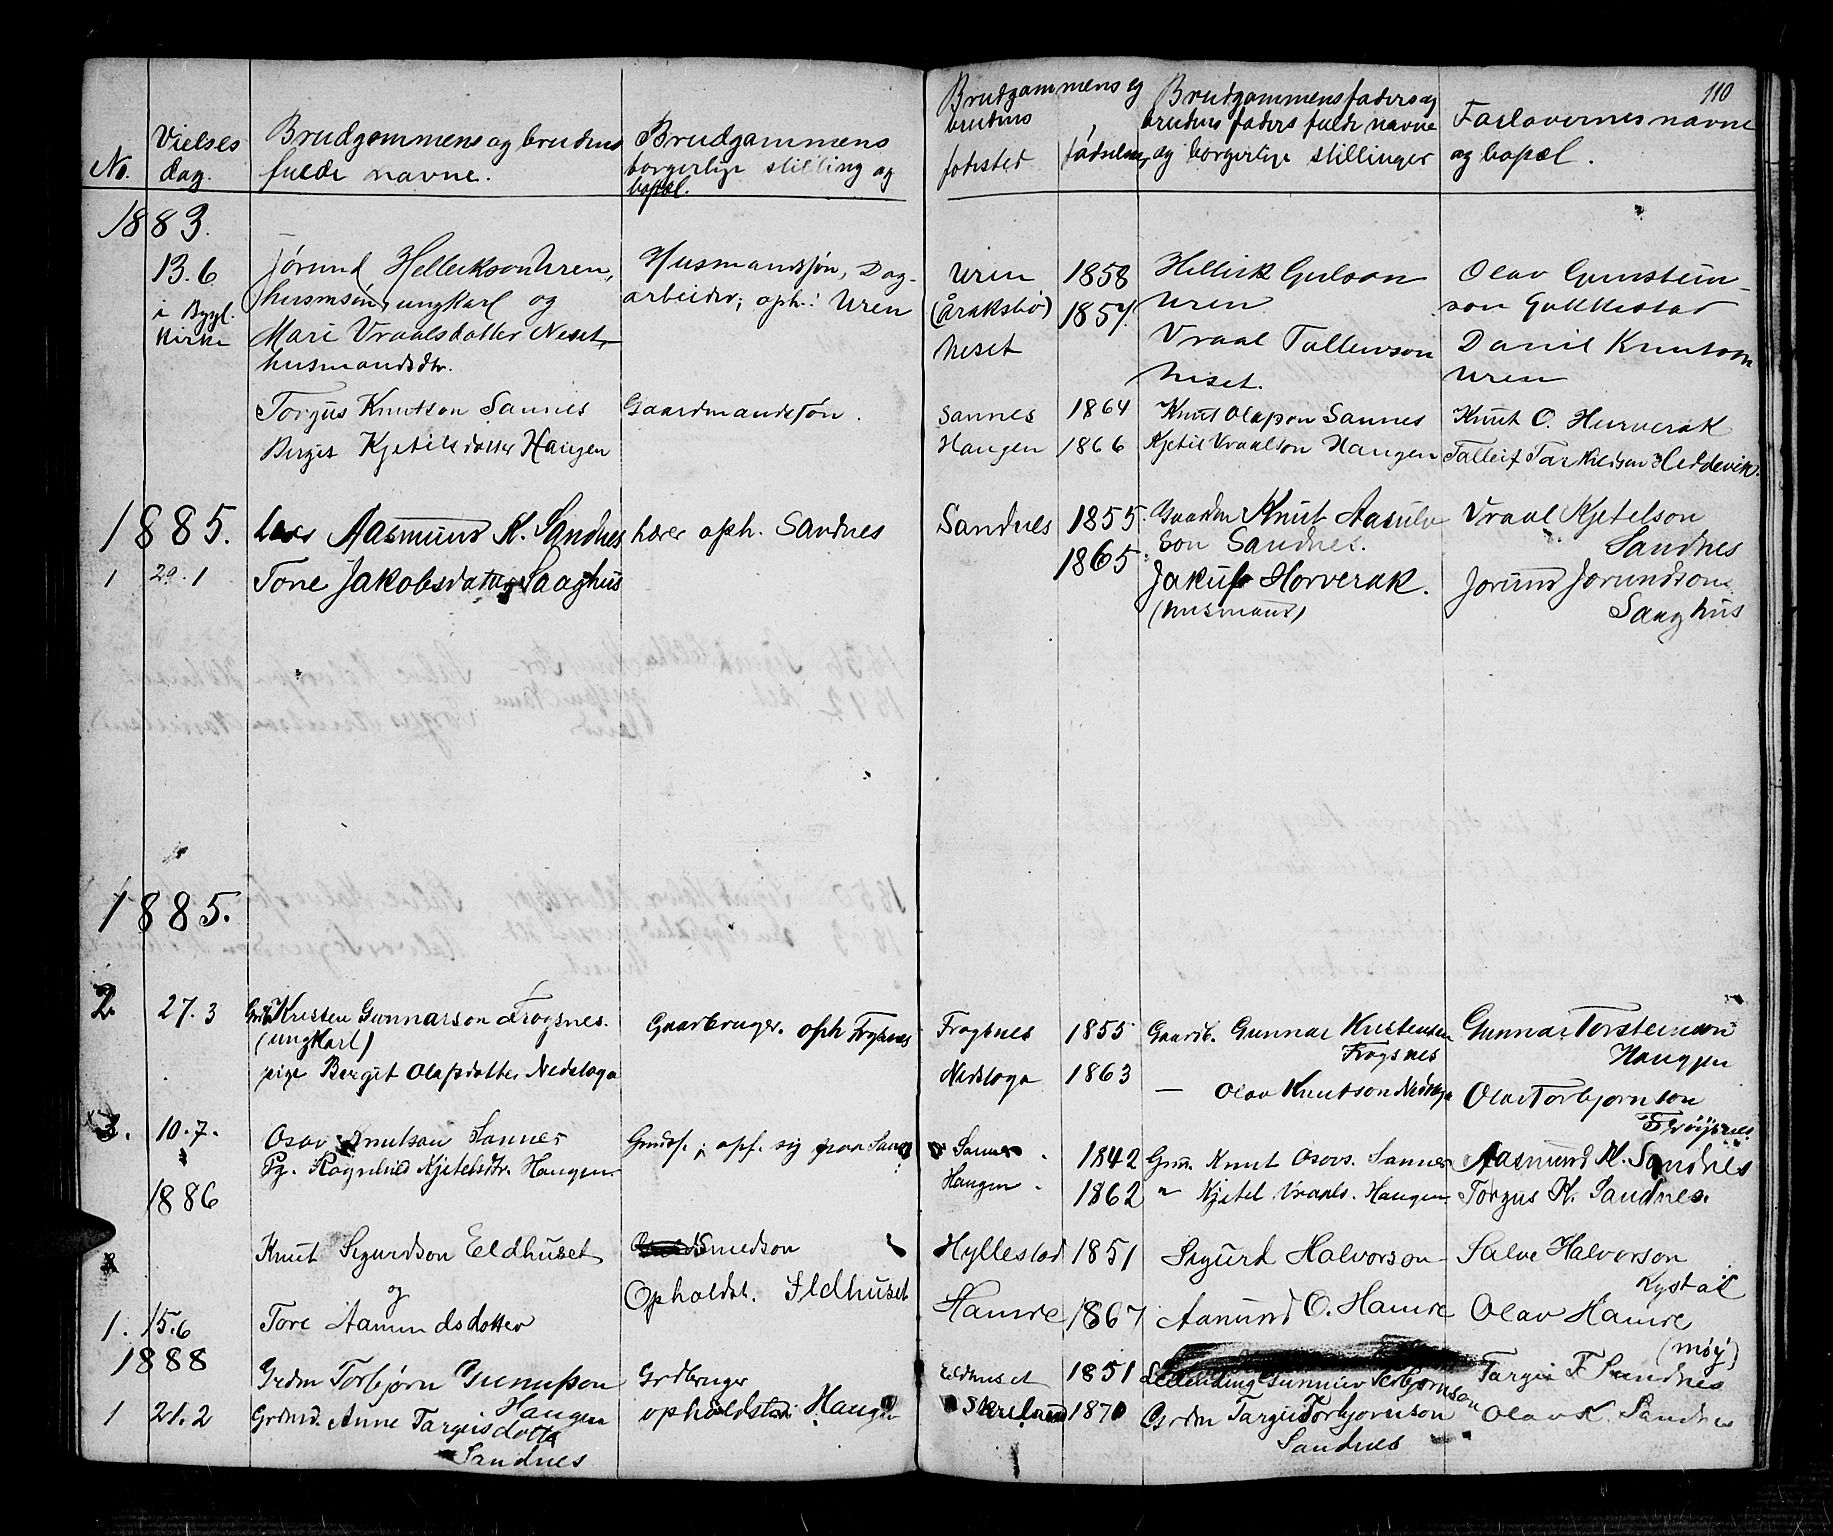 110
No.
Vielses
dag.
Brudgommens og brudens
fulde navne.
Brudgammens
borgerlige stilling og
bopæl.
Brudgommens og
brudens
fødested
fødselsaar
Brudgommens faders og
brudens faders fulde navne
og borgerlige stillinger
Forlovernes navne
og bopæl.
1883.
13.6
i Bygl.
Kirke
Jørund Hellikson Uren,
husmsøn, ungkarl og
Mari Vraalsdatter Neset,
husmandsdtr.
Husmandssøn, Dag-
arbeider; oph: Uren
Uren
(Åraksbø)
Neset
1858
1857.
Hellik Gulson
Uren
Vraal Tallevson
Neset.
Olav Gunstein-
son
Daniel Knutson
Uren
Torgus Knutson Sannes
Birgit Kjetilsdatter Haugen
Gaardmandssøn.
Sannes
Haugen
1864
1866
Knut Olapson Sannes
Kjetil Vraalson Haugen
Knut O. Hurverak
Talleif Tarkildson Heddevik.
1885.
1
29.1
Aasmund K. Sandnes
Tone Jakobsdatter Saaghus
Lærer oph. Sandnes
Sandnes
1855.
1865.
Gaardm Knut Aasulv
son Sandnes.
Jakup Horverak.
(husmand)
Vraal Kjetelson
Sandnes
Jorund Jorundson
Saaghus
1885.
2.
27.3
Kristen Gunnarson Frøgsnes.
(ungkarl)
pige Bergit Olafsdatter Nedstoga
Gaarbruger. oph Frøysnes
Frøgsnes
Nedstoga
1855
1863
Gaardb. Gunnar Kristensen
Frøgsnes
— Olav Knutson Nedstoga
Gunnar Torsteinson
Haugen
Olav Torbjørnson
Frøysnes
3.
10.7.
Osov Knutson Sannes
Pg. Ragnhild Kjetelsdtr. Haugen
Gmdsf.; opf. sig paa Sannes
Sannes.
Haugen.
1842
1862
Gmd. Knut Osovs. Sannes
" Kjetel Vraals. Haugen
Aasmund K. Sandnes
Torgus K. Sandnes.
1886
Knut Sigurdson Eldhuset
og
1.
15.6
Tore Aamundsdotter
Smedson
Opholdst. Eldhuset
Hyllestad
Hamre
1851
1867
Sigurd Halvorson
Aamund O. Hamre
Salve Halvorson
Rystad
Olav Hamre
(møy)
1888
1
21.2
Grdm Torbjørn Gunnufson
Haugen
Grdmd. Anne Targiesdotter
Sandnes
Grdbruger
opholdsted Haugen
Eldhuset
1851
1870
Leilending Gunnuv Torbjørnson
Grdm Targie Torbjørnson
Sandnes
Targie T. Sandnes
Olav K. Sandnes